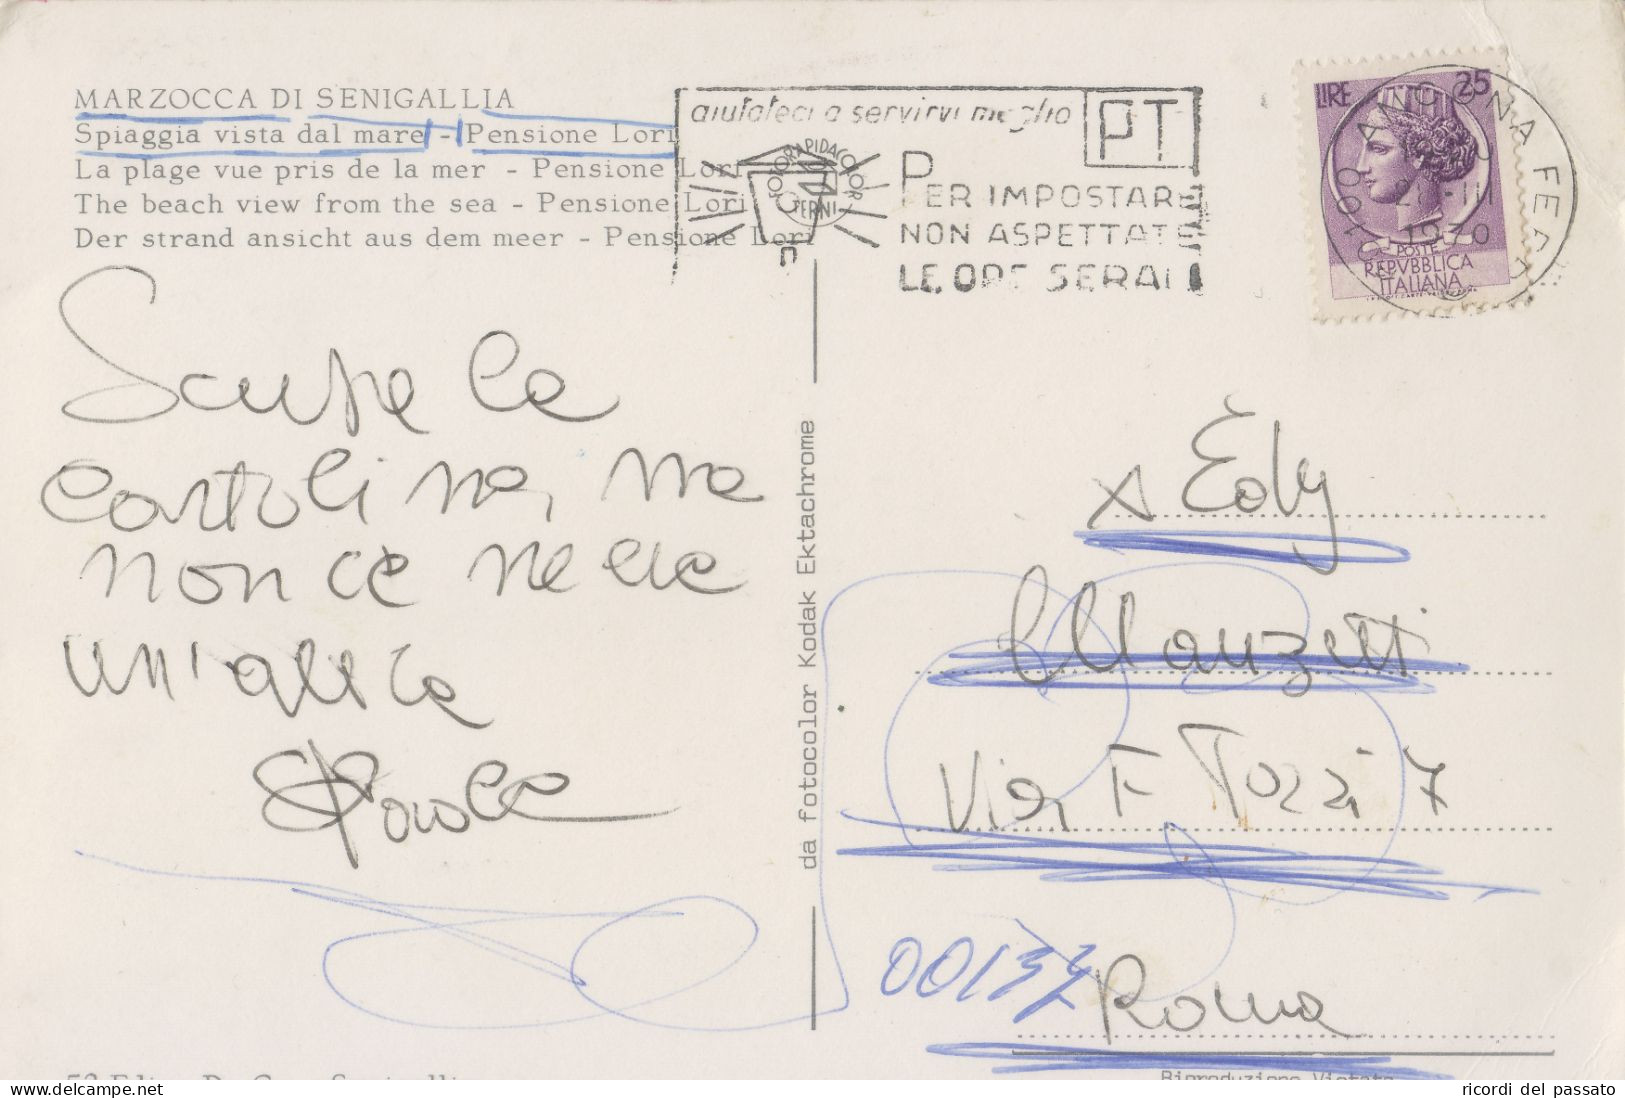 MARZOCCA DI SENIGALLIA
Spiaggia vista dal mare - Pensione Lori
La plage vue pris de la mer - Pensione Lori
The beach view from the sea - Pensione Lori
Der strand ansicht aus dem meer - Pensione Lori
aiutateci a servirvi meglio
PT
FOTORAPIDACOLOR
TERNI
PER IMPOSTARE
NON ASPETTATE
LE ORE SERALI
LIRE 25
POSTE
REPVBBLICA
ITALIANA
ANCONA FER
1970
Scusa la
cartolina, ma
non ce ne era
un'altra
Paola
da fotocolor Kodak Ektachrome
x Edy
Manzetti
Via F Tozzi 7
00137 Roma
Riproduzione Vietata
ricordi del passato
delcampe.net